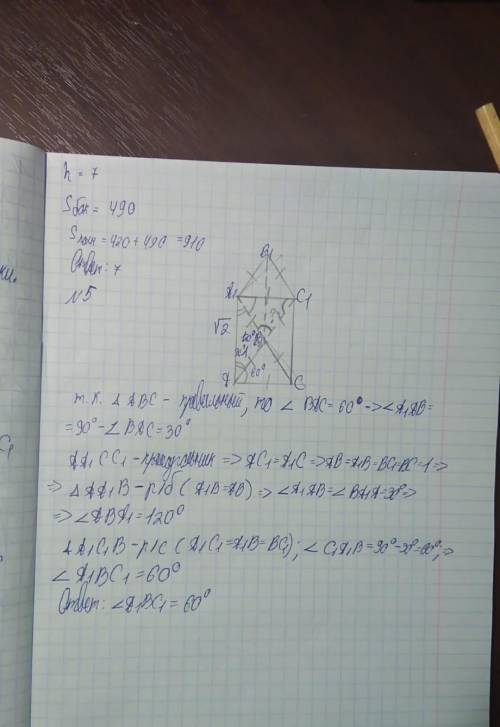 h = 7
Sбок = 490
Sполн = 420 + 490 = 910
Ответ: 7
№5
B1
A1
C1
√2
60°
A
C
т.к. △ABC - правильный, то ∠BAC = 60° -> ∠A1AB =
= 90° - ∠BAC = 30°
AA1CC1 - прямоугольник => AC1 = A1C => AB = A1B = BC1 = BC = 1 =>
=> △AA1B - р/б (A1B = AB) => ∠A1AB = ∠BA1A = 30° =>
=> ∠ABA1 = 120°
△A1C1B - р/с (A1C1 = A1B = BC1); ∠C1A1B = 90° - 30° = 60°; =>
∠A1BC1 = 60°
Ответ: ∠A1BC1 = 60°